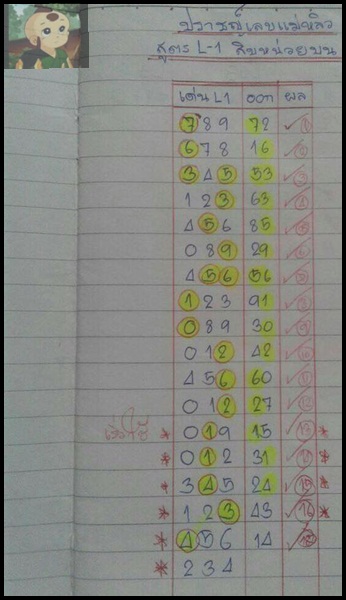 ปราชญ์เลขแม่หลิว
สูตร L-1 สิบหน่วยบน
เด่น L1 ออก ผล
7 8 9 72 ✓ 1
6 7 8 16 ✓ 2
3 4 5 53 ✓ 3
1 2 3 63 ✓ 4
4 5 6 85 ✓ 5
0 8 9 29 ✓ 6
4 5 6 56 ✓ 7
1 2 3 91 ✓ 8
0 8 9 30 ✓ 9
0 1 2 42 ✓ 10
4 5 6 60 ✓ 11
0 1 2 27 ✓ 12
* 0 1 9 15 ✓ 13 *
* 0 1 2 31 ✓ 14 *
* 3 4 5 24 ✓ 15 *
* 1 2 3 43 ✓ 16 *
* 4 5 6 14 ✓
* 2 3 4